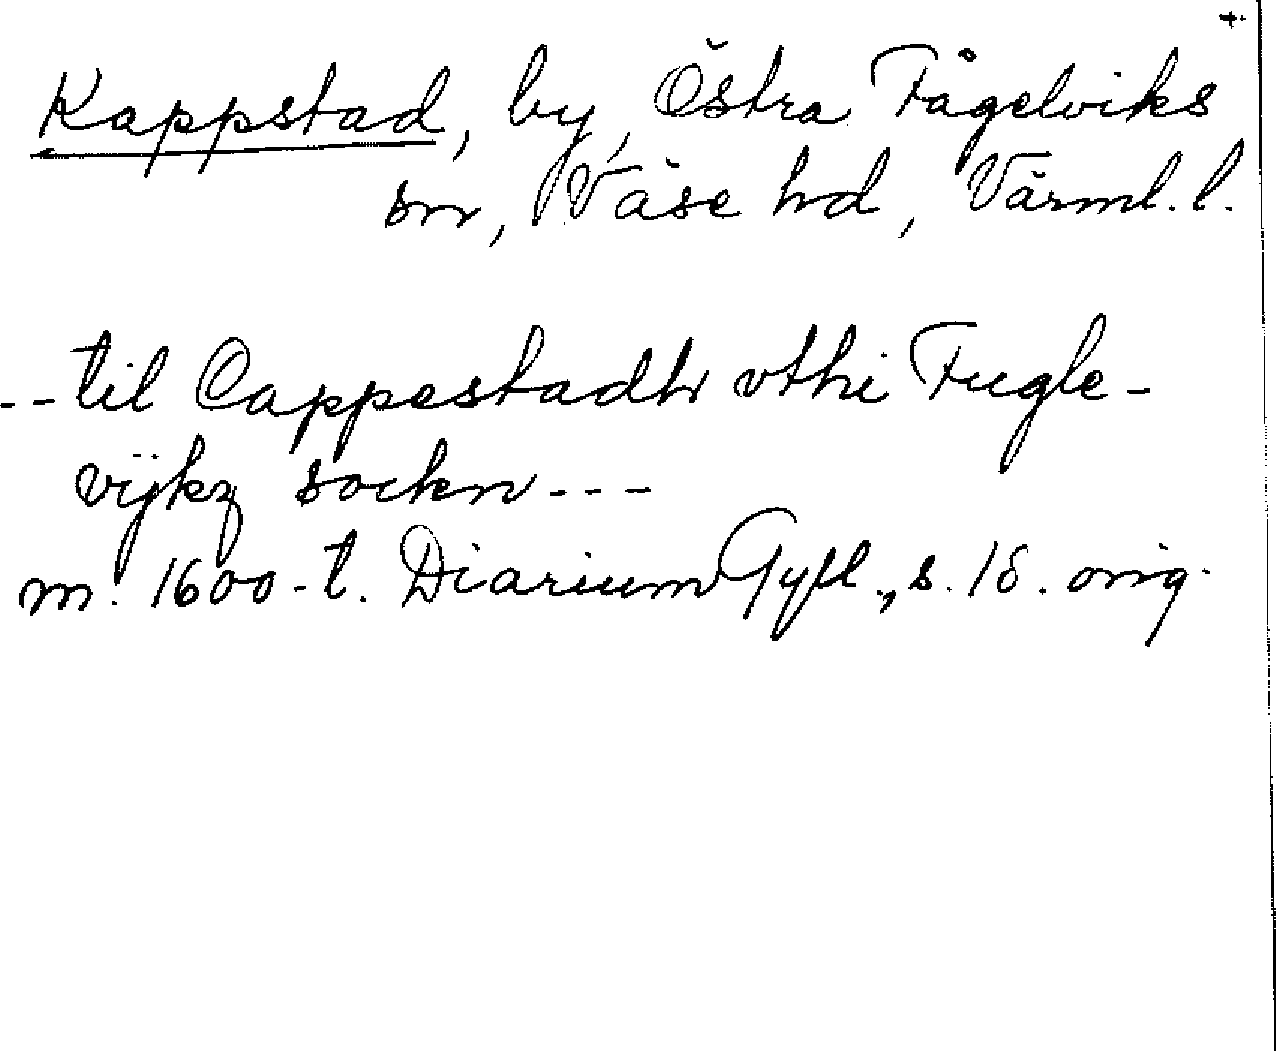 +.
Kappstad, by, Östra Fågelviks
sn, Väse hd, Värml. l.
-- til Cappestadh vthi Fugle-
vijkz sockn ---
m. 1600-t. Diarium Gyll., s. 18. orig.